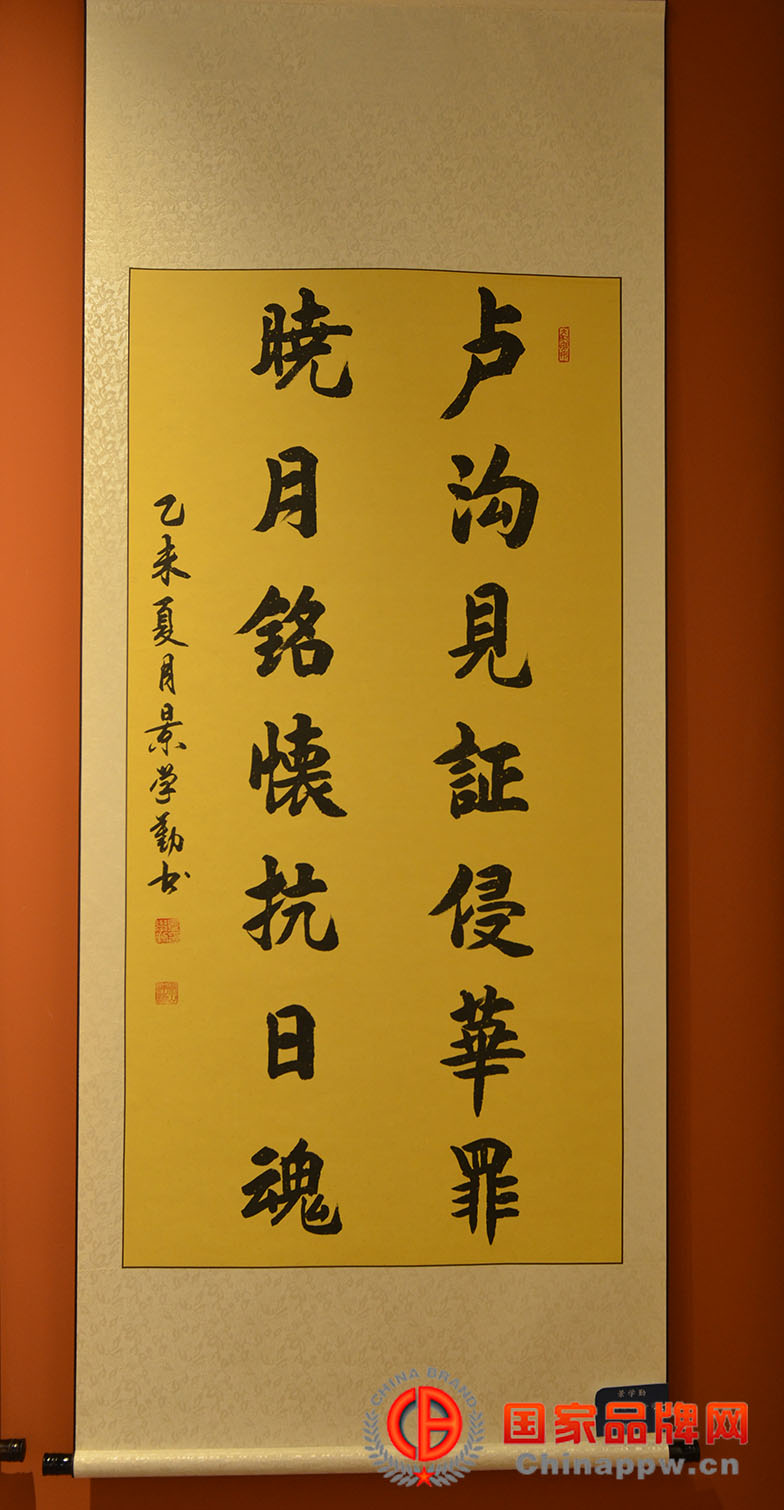 卢沟見証侵華罪
暁月銘懐抗日魂
乙未夏月景学勤书
景学勤
CHINA BRAND
CB
国家品牌网
Chinappw.cn